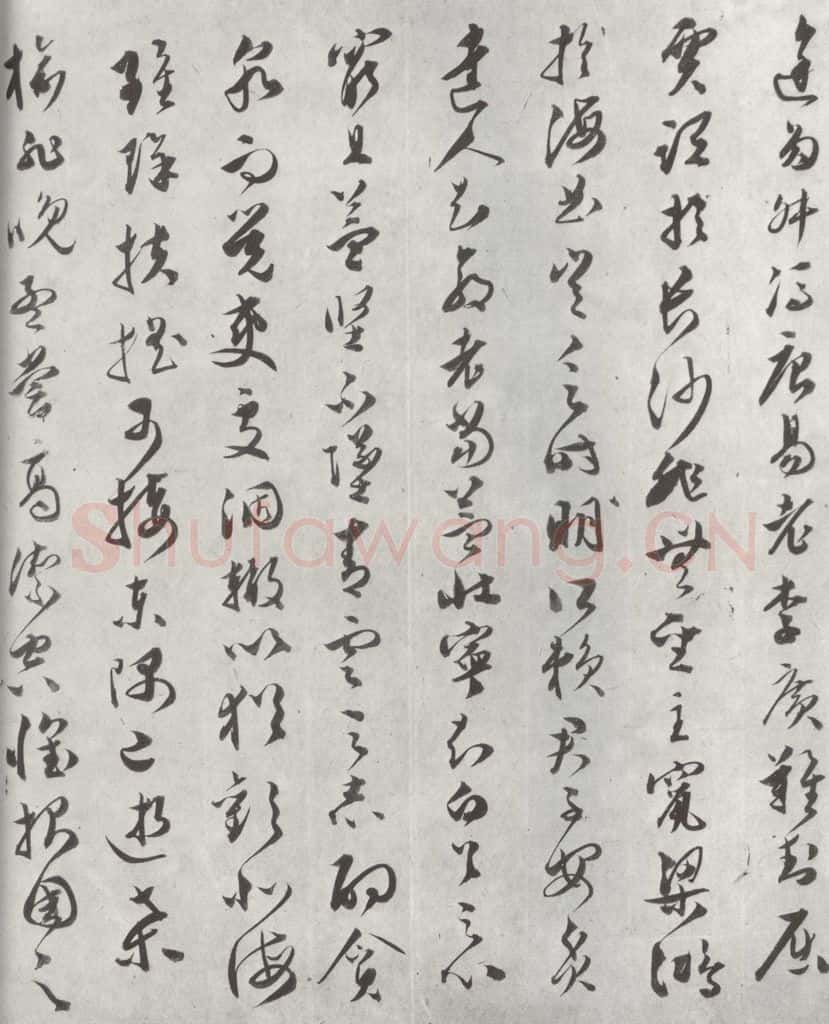 途多舛馮唐易老李廣難封屈
賈誼於長沙非無聖主竄梁鴻
於海曲豈乏時明所賴君子安貧
達人知命老當益壯寧知白首之心
窮且益堅不墜青雲之志酌貪
泉而覺爽處涸轍以猶歡北海
雖賒扶搖可接東隅已逝桑
榆非晚孟嘗高潔空懷報國之
Shufawang.CN